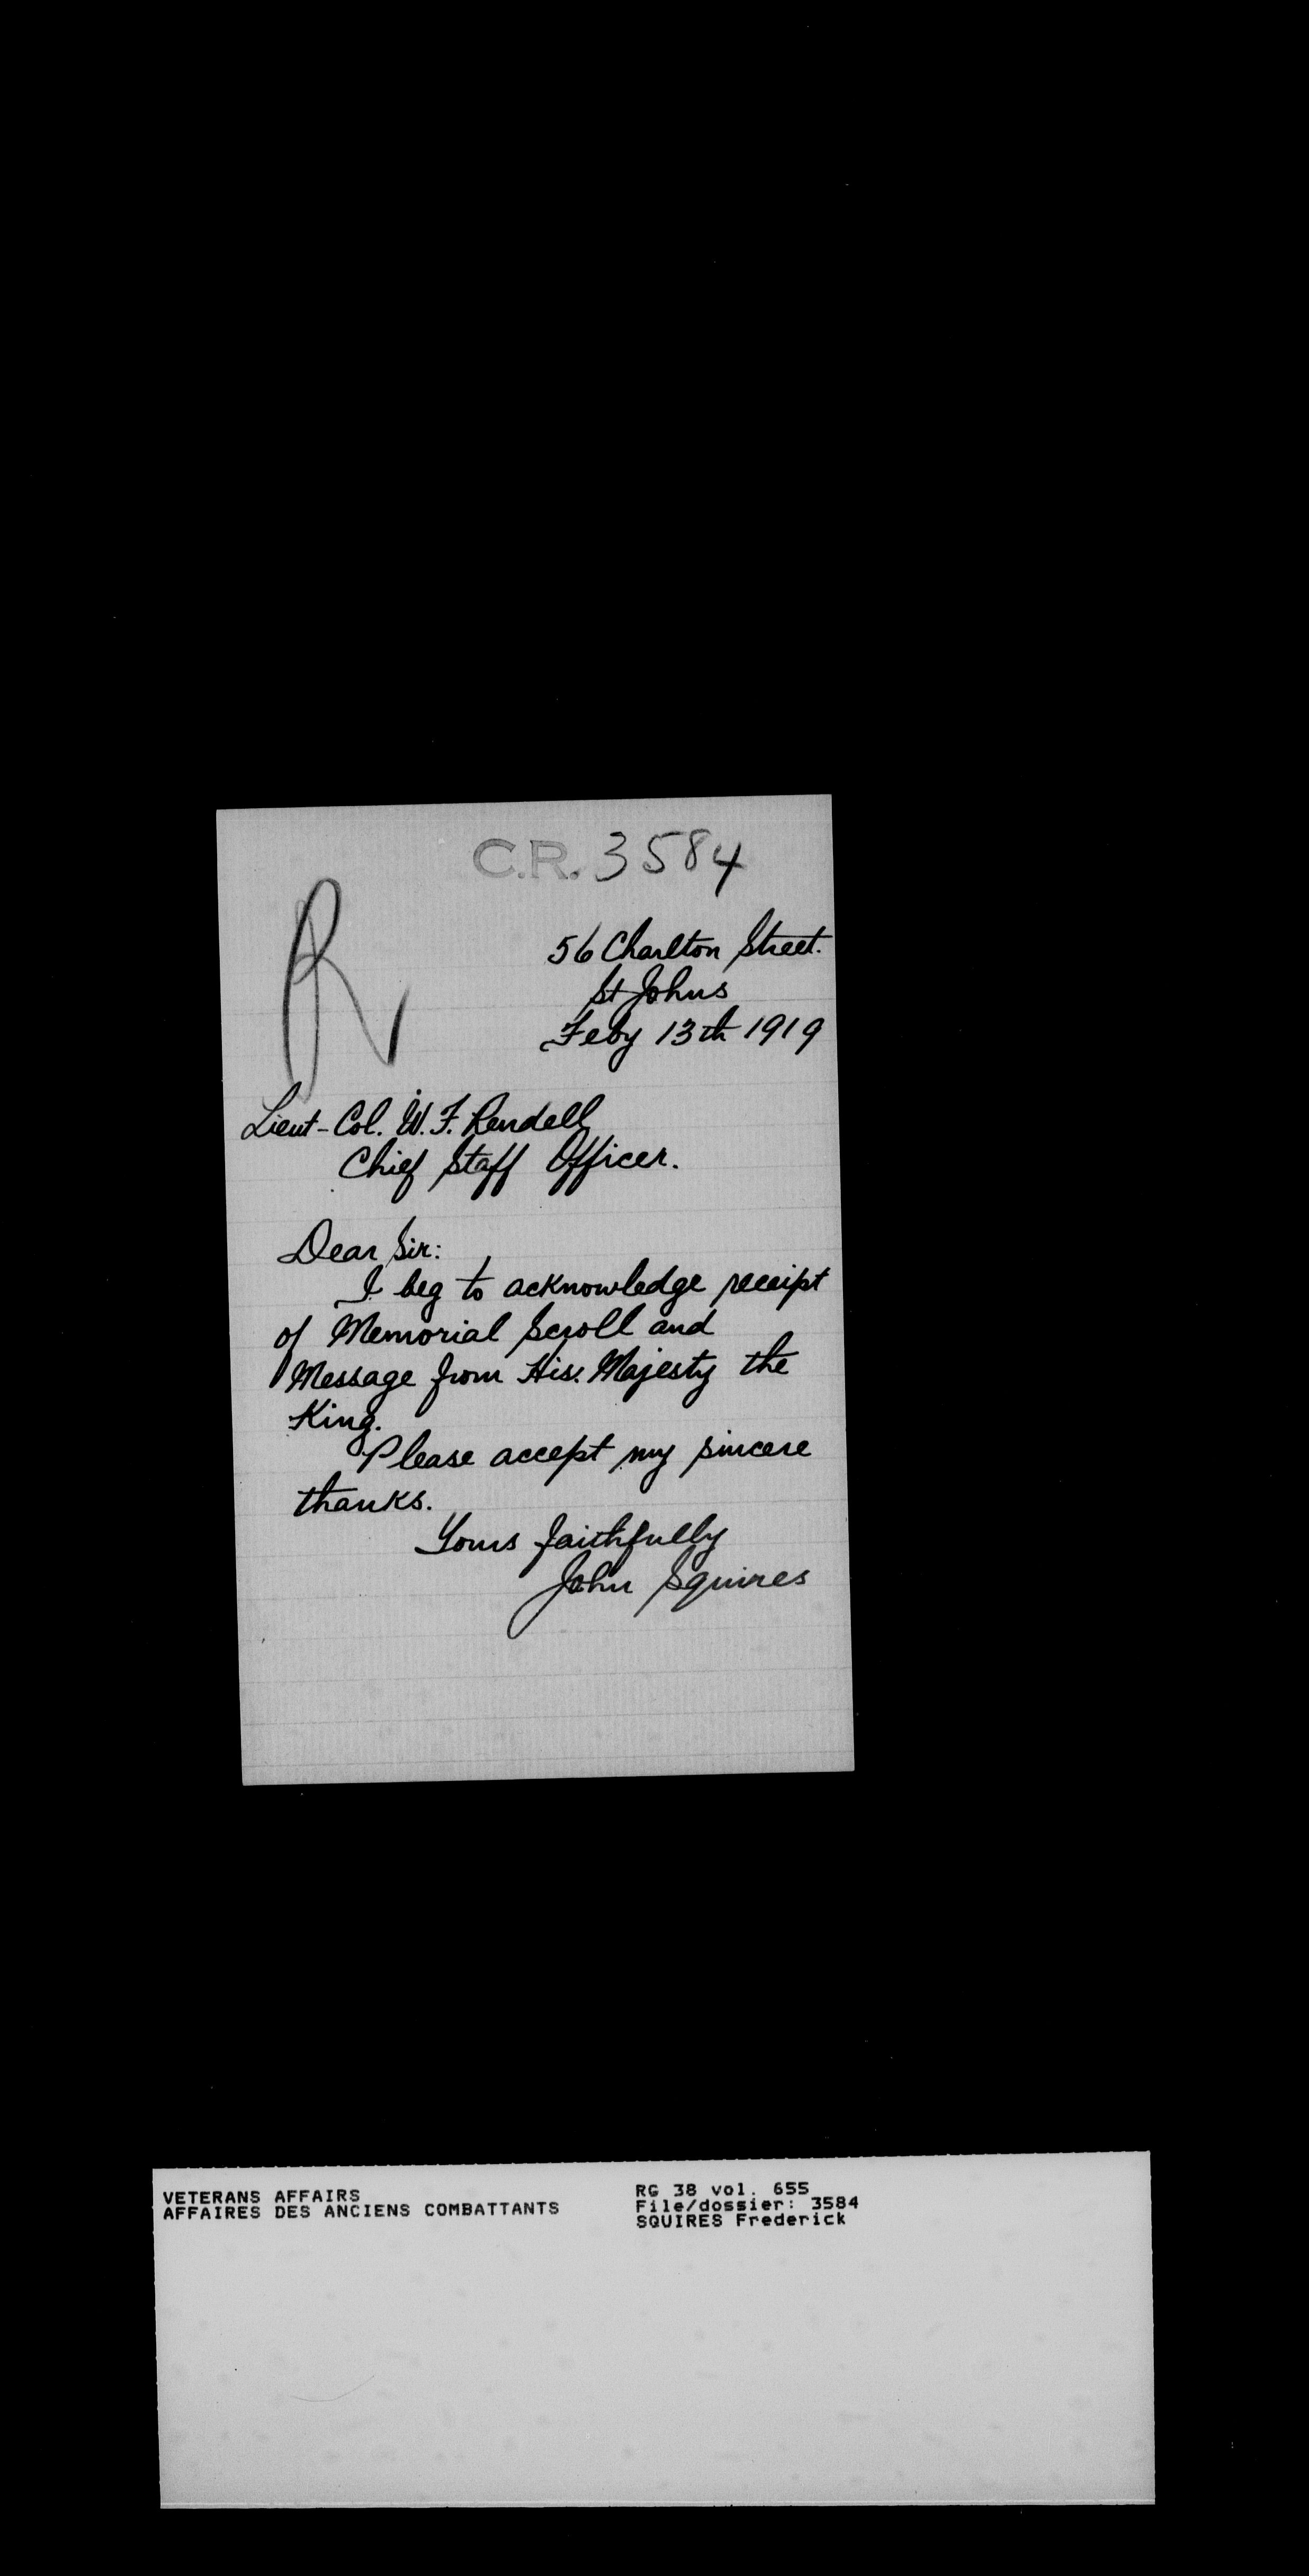 C.R. 3584
R
56 Charlton Street.
St Johns
Feby 13th 1919
Lieut-Col. W. F. Rendell
Chief Staff Officer.
Dear Sir:
I beg to acknowledge receipt
of Memorial Scroll and
Message from His Majesty the
King.
Please accept my sincere
thanks.
Yours faithfully
John Squires
VETERANS AFFAIRS
AFFAIRES DES ANCIENS COMBATTANTS
RG 38 vol. 655
File/dossier: 3584
SQUIRES Frederick